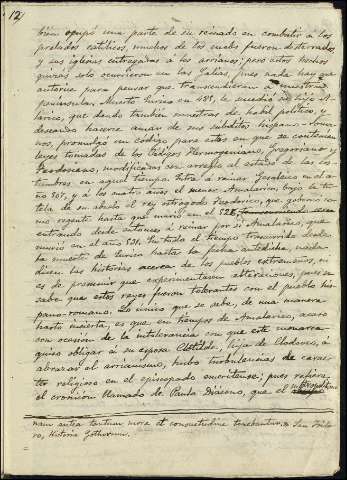 12
bién ocupó una parte de su reinado en combatir á los
prelados católicos, muchos de los cuales fueron desterrados
y sus iglesias entregadas a los arrianos; pero estos hechos
quizás solo ocurrieron en las Galias, pues nada hay que
autorice para pensar que transcendieran a nuestra
península. Muerto Eurico en 484, le sucedió su hijo A-
larico, que dando tambien muestras de habil politico, y
deseando hacerse amar de sus subditos hispano-roma-
nos, promulgó un código para estos en que se contenian
leyes tomadas de los Códigos Hermogeniano, Gregoriano y
Teodosiano, modificadas con arreglo al estado de las cos-
tumbres en aquel tiempo. Entra á reinar Gesaleico en el año
507, y á los cuatro años el menor Amalarico, bajo la tu-
tela de su abuelo el rey ostrogodo Teodorico, que gobernó co-
mo regente hasta que murió en el 526,
entrando desde entonces á reinar por sí Amalarico, que
murió en el año 531. En todo el tiempo transcurrido desde
la muerte de Eurico hasta la fecha antedicha, nada
dicen las historias acerca de los pueblos extremeños, ni
es de presumir que experimentaran alteraciones, pues se
sabe que estos reyes fueron tolerantes con el pueblo his-
pano-romano. Lo unico que se sabe, de una manera
harto incierta, es que en tiempos de Amalarico, acaso
con ocasion de la intolerancia con que este monarca
quiso obligar á su esposa Clotilde, hija de Clodoveo, á
abrazar el arrianismo, hubo turbulencias de carac-
ter religioso en el episcopado emeritense; pues refiere
el cronicon llamado de Paulo Diácono, que el metropolitano
nam antea tantum more et consuetudine tenebantur. San Isido-
ro, Historia Gothorum.